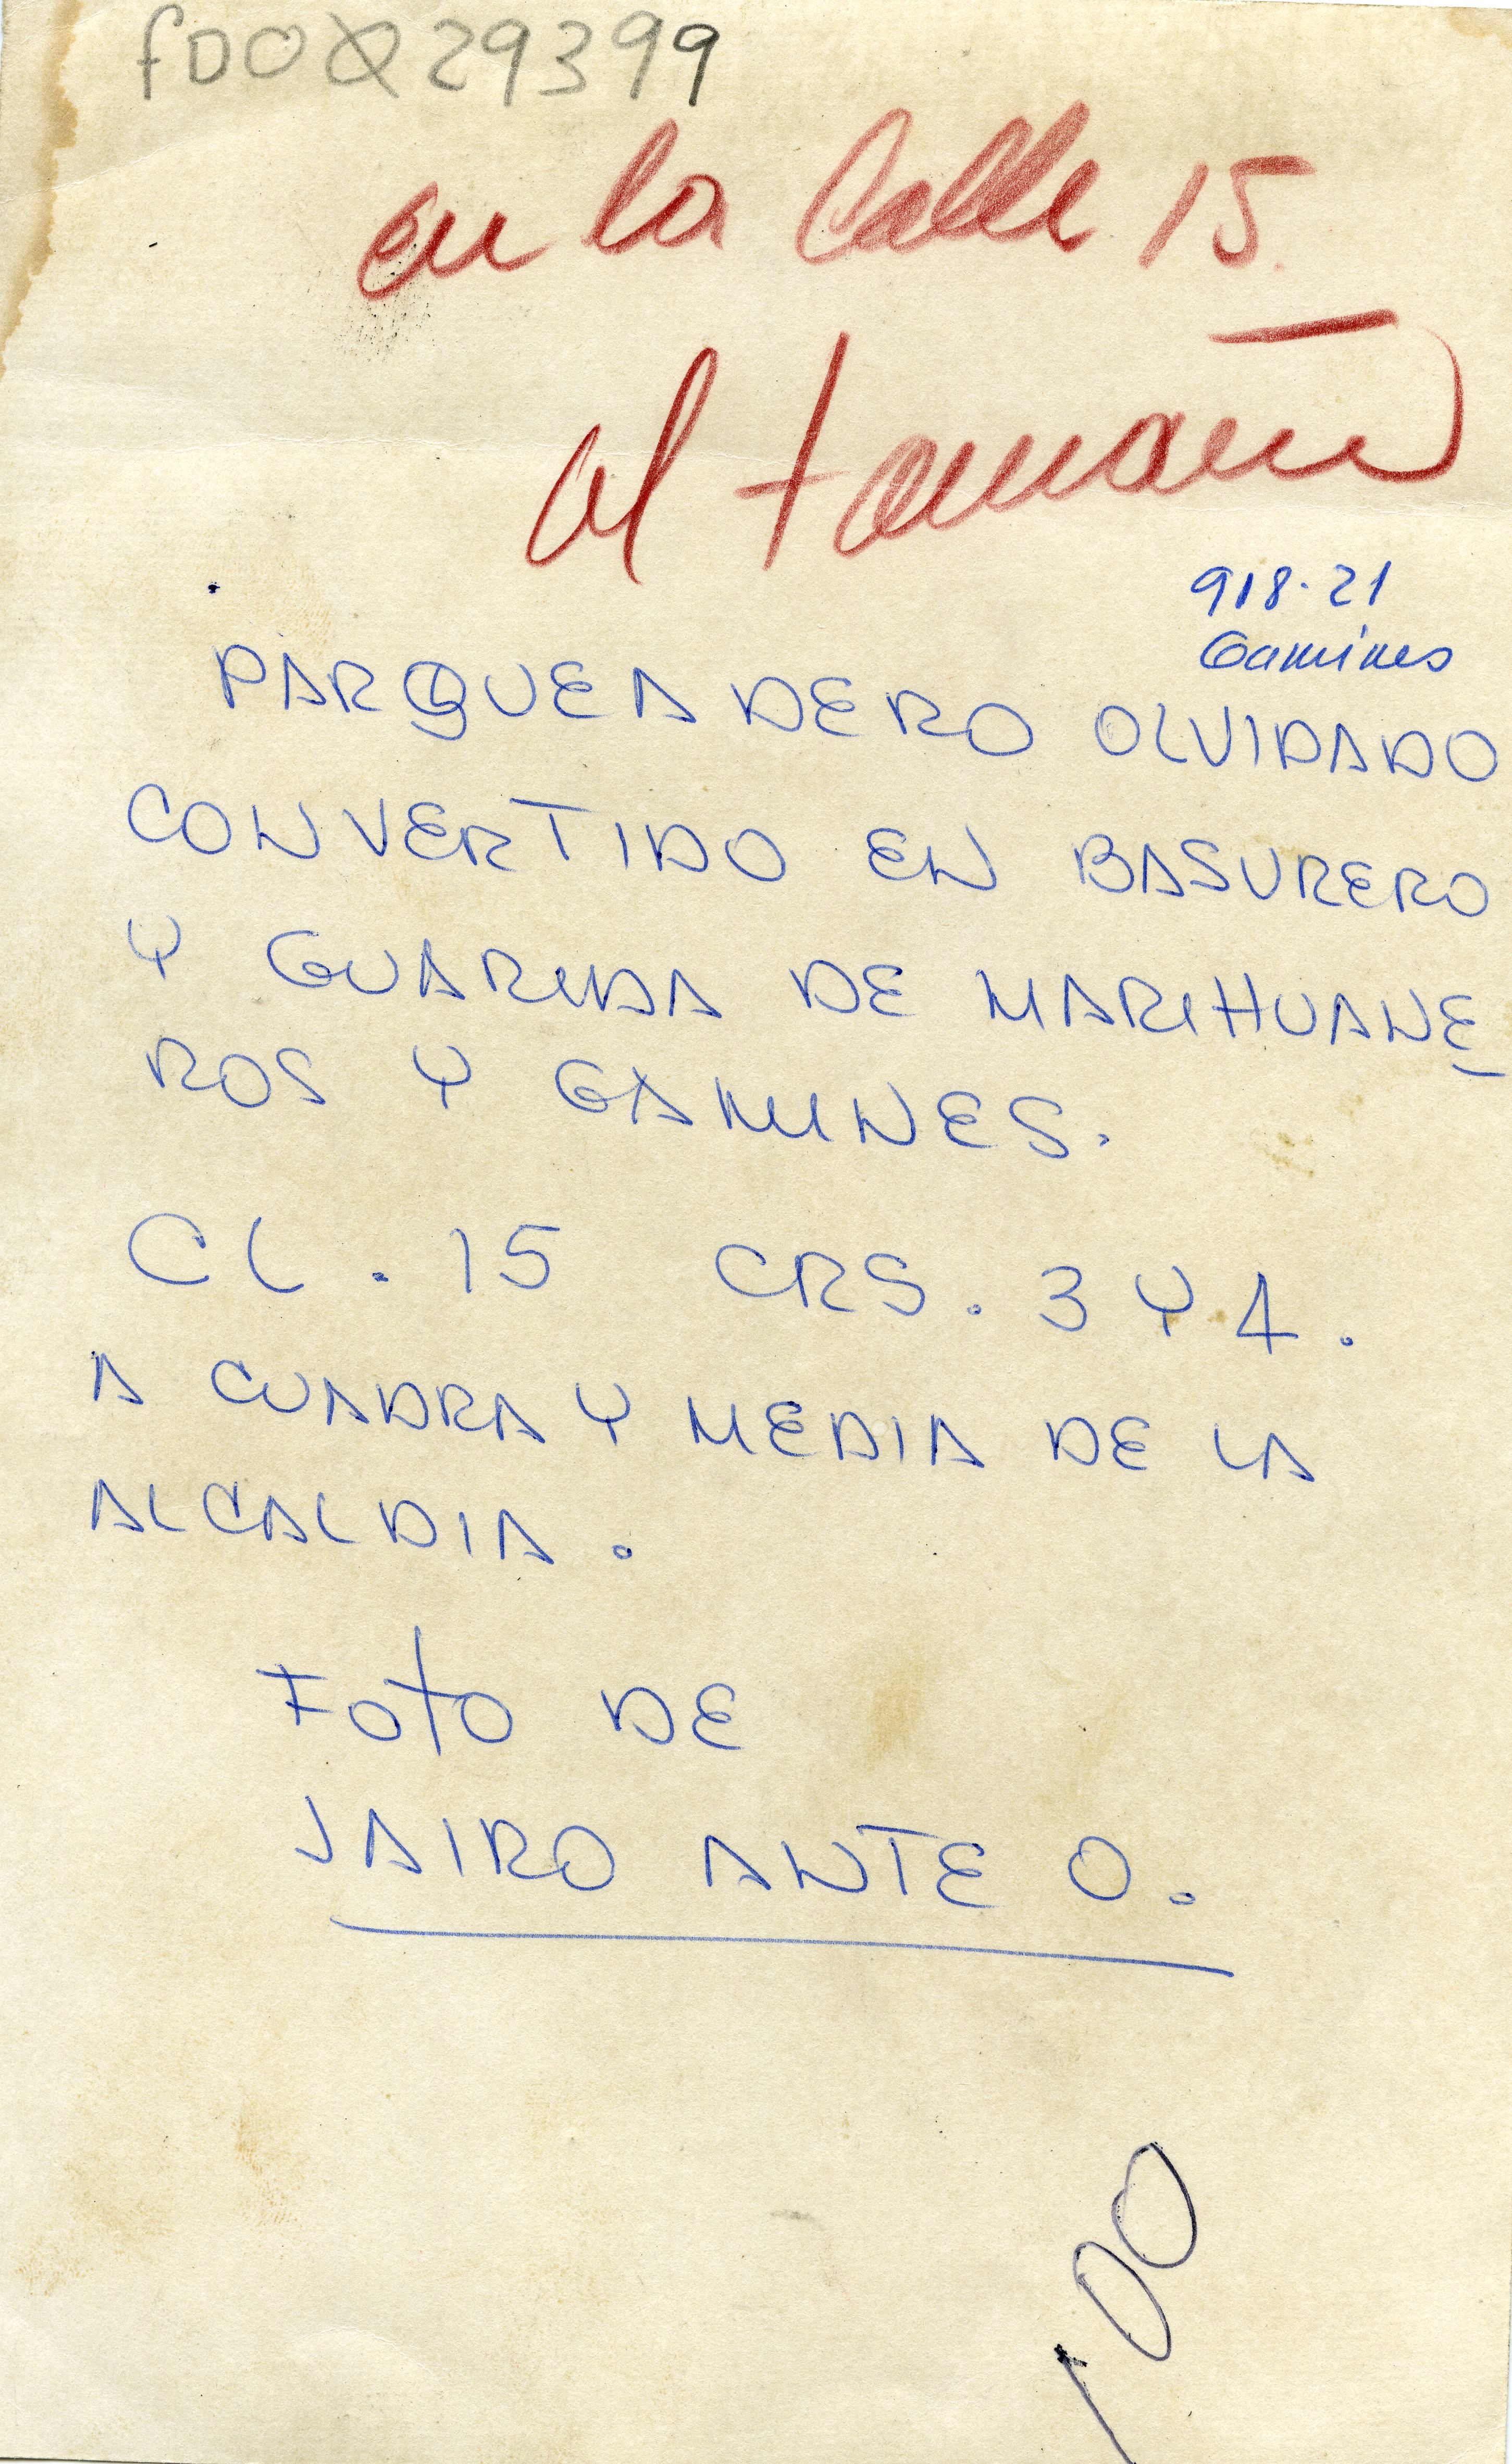 en la Calle 15
al tamaño
918-21
Gamines
PARQUEADERO OLVIDADO
CONVERTIDO EN BASURERO
Y GUARIDA DE MARIHUANE
ROS Y GAMINES.
CL. 15 CRS. 3 Y 4.
A CUADRA Y MEDIA DE LA
ALCALDIA.
FOTO DE
JAIRO ANTE O.
100